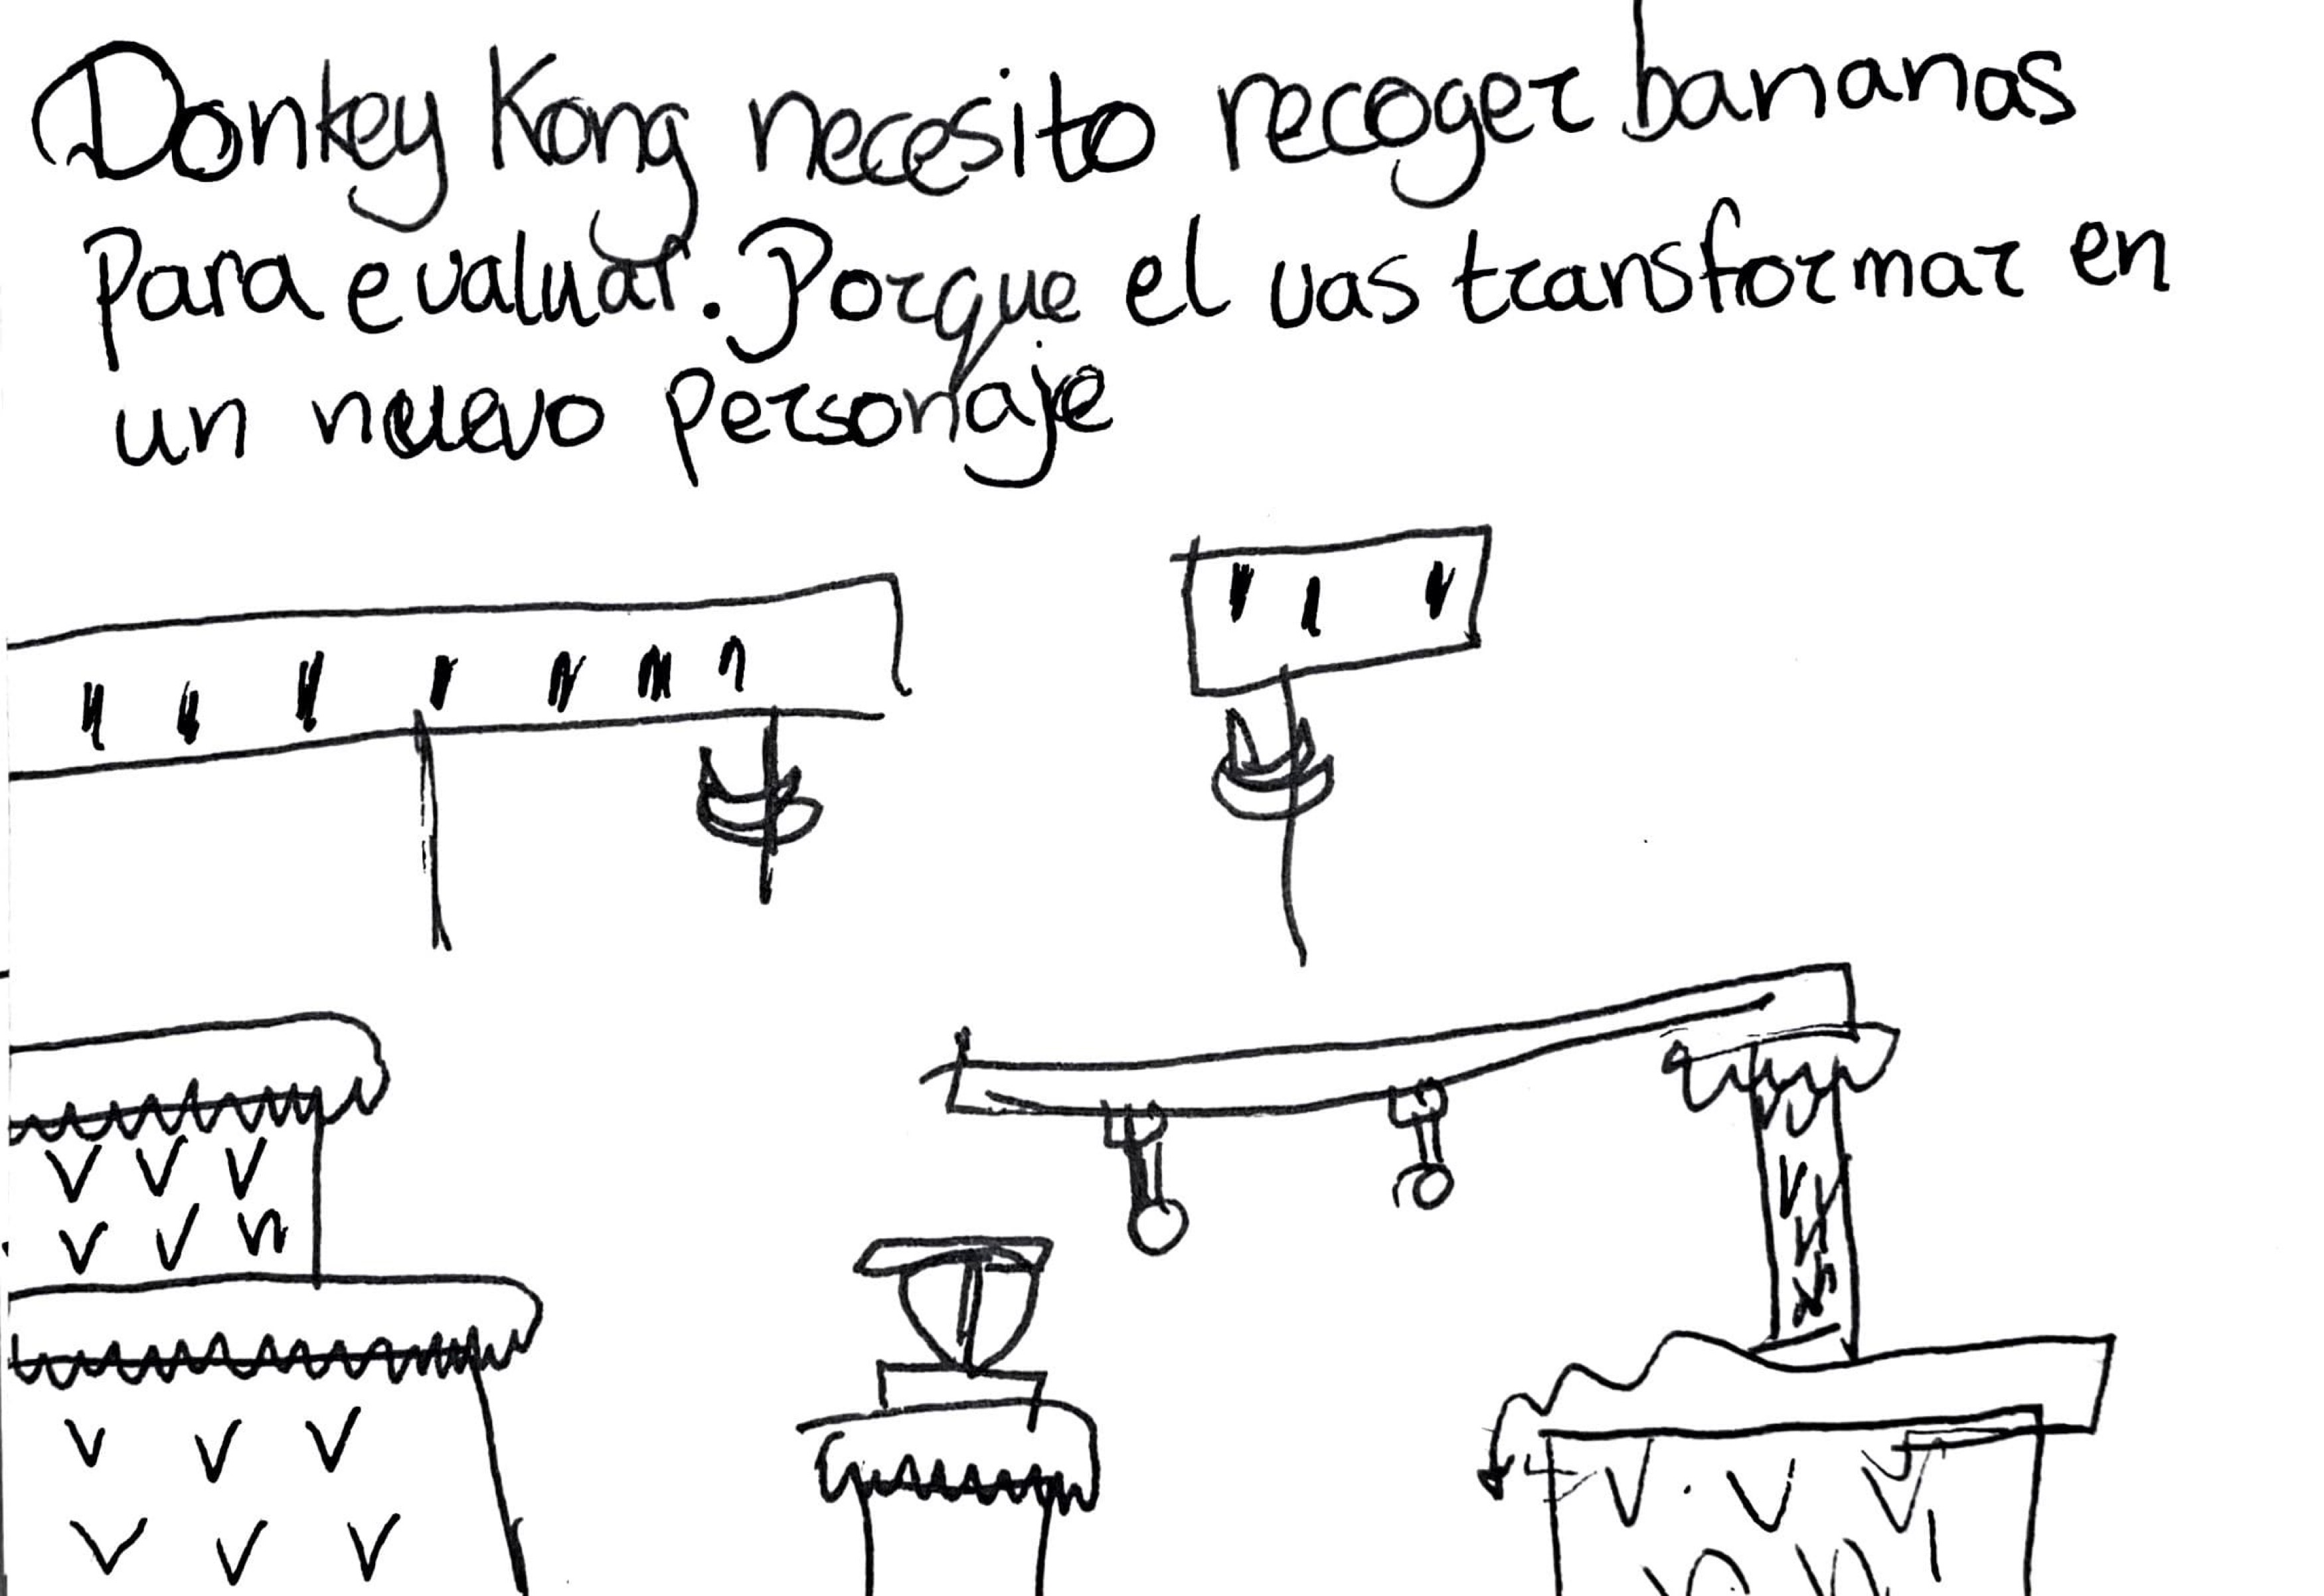 Donkey Kong necesito recoger bananas
para evaluar. Porque el vas transformar en
un nuevo personaje